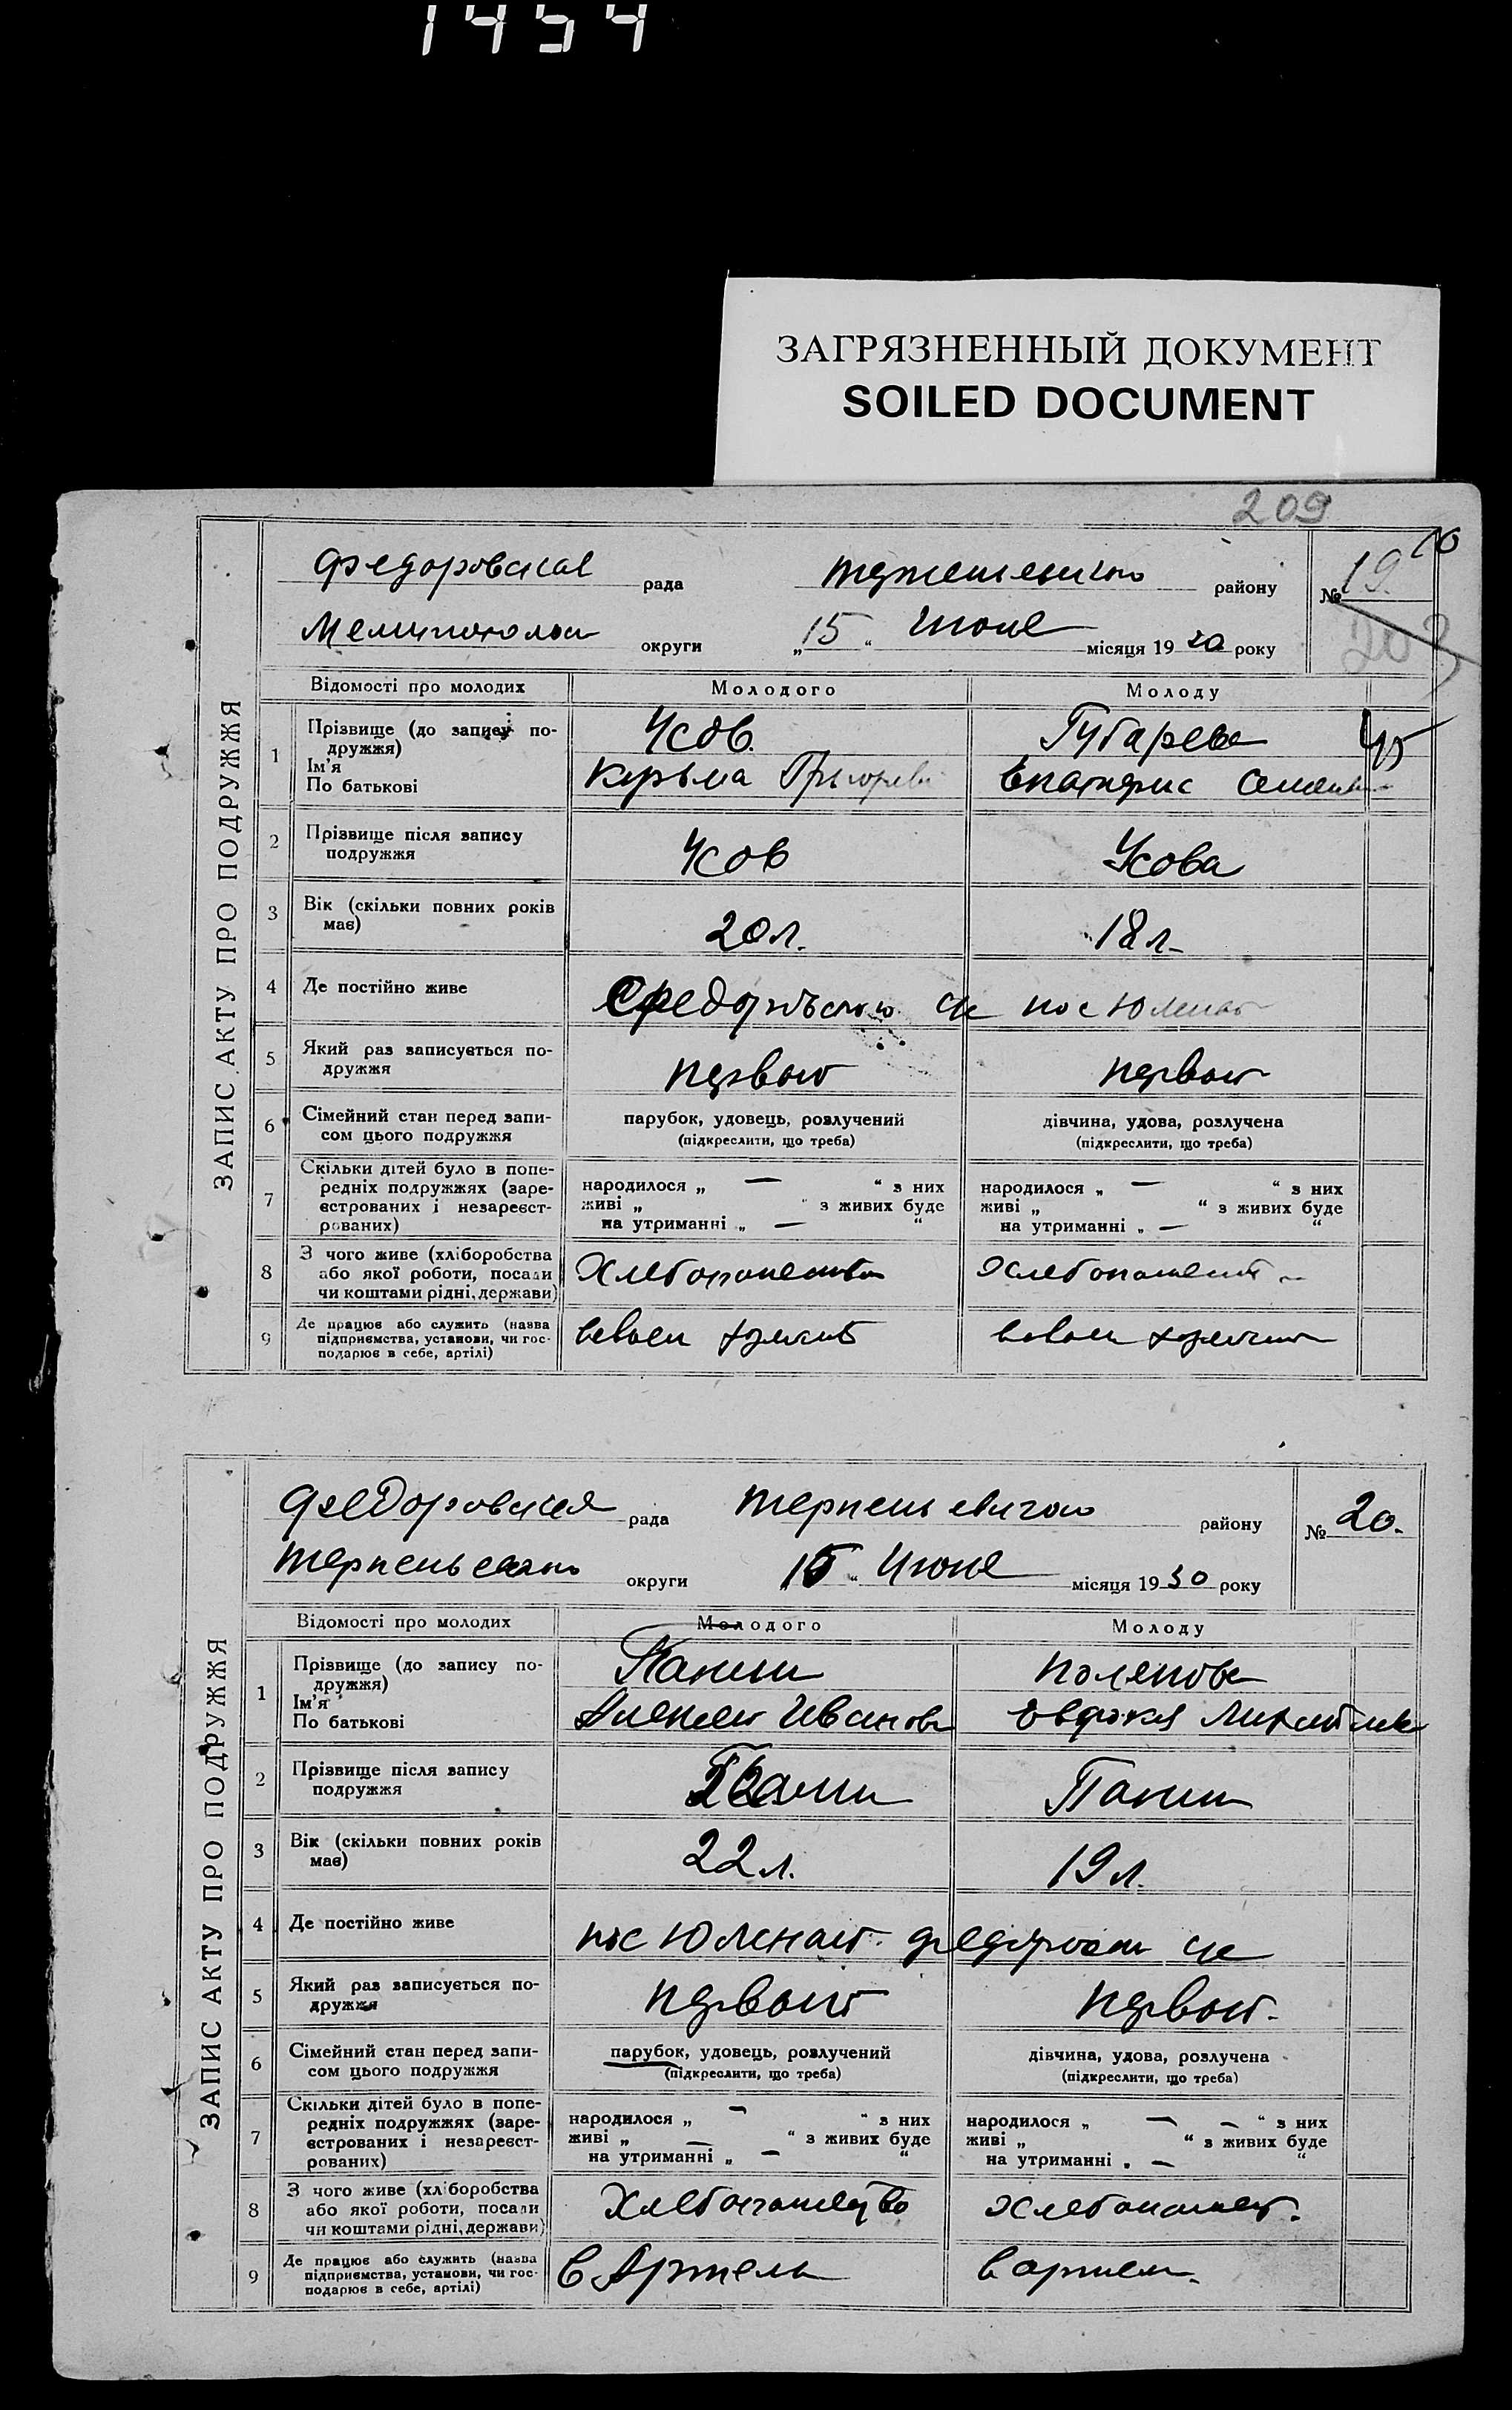 1454
ЗАГРЯЗНЕННЫЙ ДОКУМЕНТ
SOILED DOCUMENT
209
ЗАПИС АКТУ ПРО ПОДРУЖЖЯ
Федоровская рада району № 19.
округи „15“ Июня місяця 1930 року
203
Відомості про молодих Молодого Молоду
1 Прізвище (до запису по-
дружжя)
Ім'я
По батькові
Усов Губарева
Кузьма
2 Прізвище після запису
подружжя
Усов Усова
3 Вік (скільки повних років
має)
20 л. 18 л.
4 Де постійно живе
5 Який раз записується по-
дружжя
первый первый
6 Сімейний стан перед запи-
сом цього подружжя
парубок, удовець, розлучений
(підкреслити, що треба)
дівчина, удова, розлучена
(підкреслити, що треба)
7 Скільки дітей було в попе-
редніх подружжях (заре-
єстрованих і незареєст-
рованих)
народилося „ — “ з них
живі „ “ з живих буде
на утриманні „ — “
народилося „ — “ з них
живі „ “ з живих буде
на утриманні „ — “
8 З чого живе (хліборобства
або якої роботи, посади
чи коштами рідні, держави)
9 Де працює або служить (назва
підприємства, установи, чи гос-
подарює в себе, артілі)
ЗАПИС АКТУ ПРО ПОДРУЖЖЯ
Федоровская рада району № 20.
округи 15 “ Июня місяця 1930 року
Відомості про молодих Молодого Молоду
1 Прізвище (до запису по-
дружжя)
Ім'я
По батькові
Панин
2 Прізвище після запису
подружжя
Панин
3 Вік (скільки повних років
має)
22 л. 19 л.
4 Де постійно живе
5 Який раз записується по-
дружжя
первый первый
6 Сімейний стан перед запи-
сом цього подружжя
парубок, удовець, розлучений
(підкреслити, що треба)
дівчина, удова, розлучена
(підкреслити, що треба)
7 Скільки дітей було в попе-
редніх подружжях (заре-
єстрованих і незареєст-
рованих)
народилося „ — “ з них
живі „ — “ з живих буде
на утриманні „ — “
народилося „ — — “ з них
живі „ “ з живих буде
на утриманні „ — “
8 З чого живе (хліборобства
або якої роботи, посади
чи коштами рідні, держави)
9 Де працює або служить (назва
підприємства, установи, чи гос-
подарює в себе, артілі)
в Артель